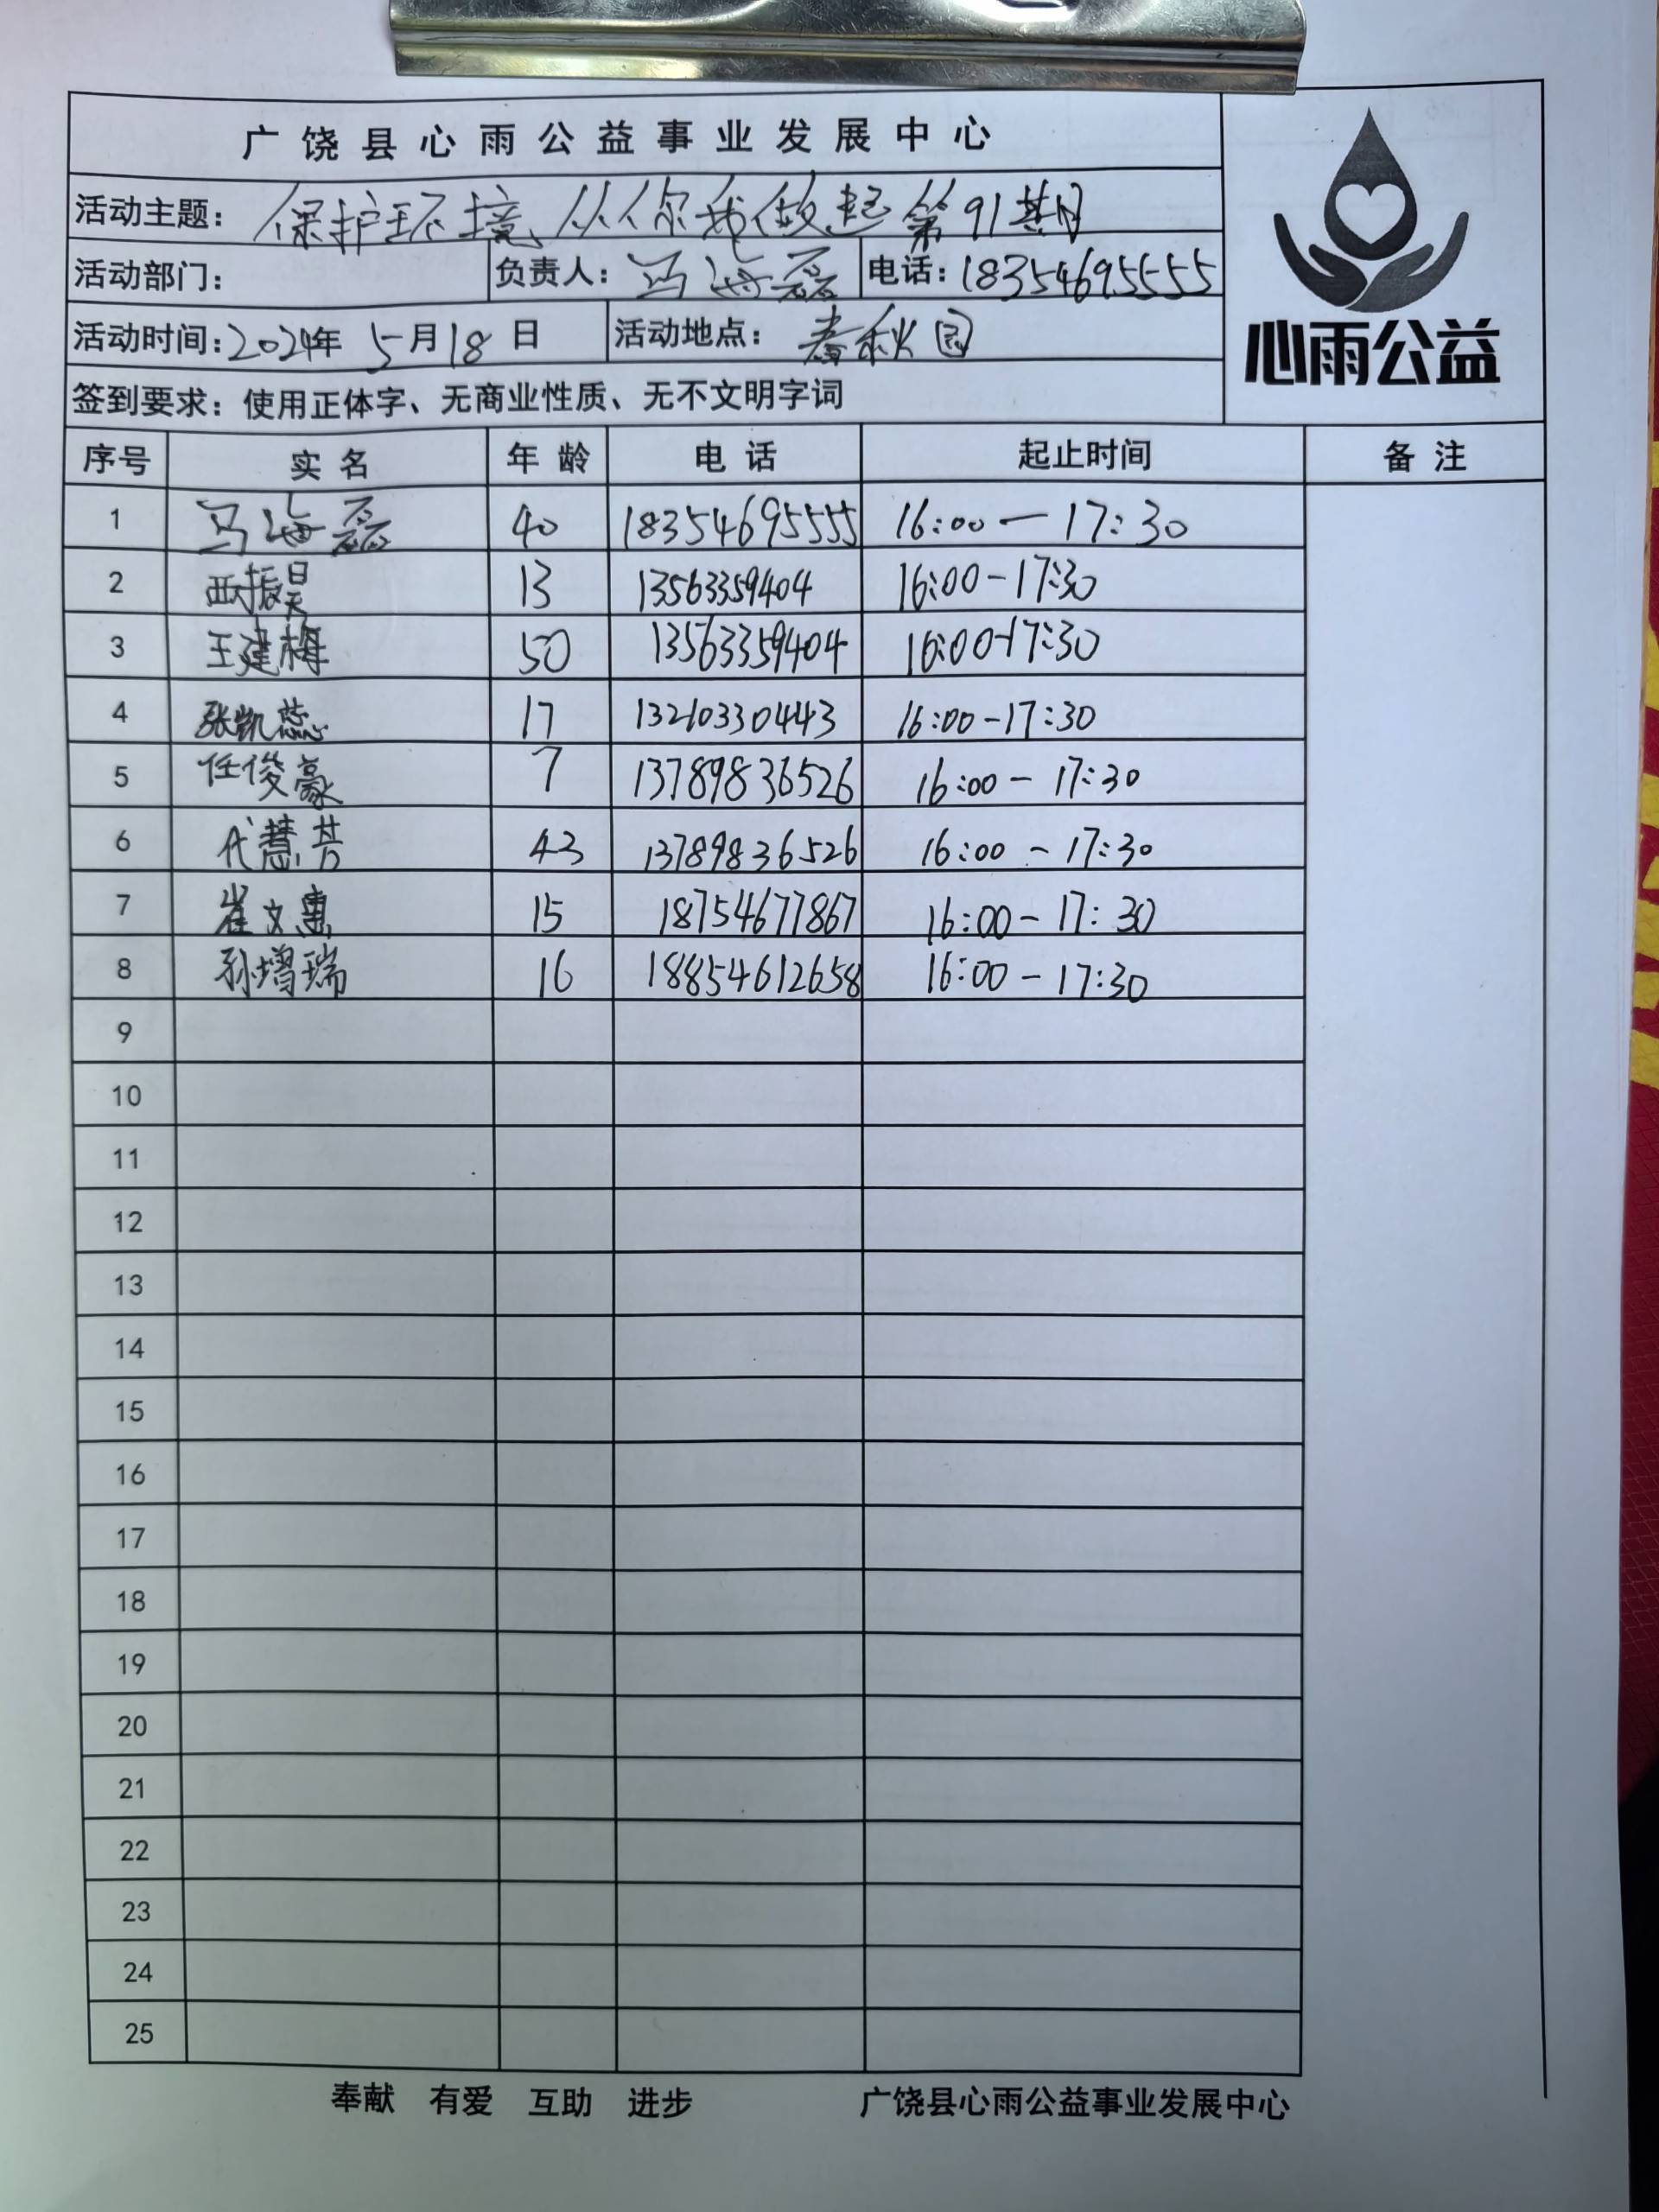 广饶县心雨公益事业发展中心
活动主题：保护环境、从你我做起第91期
活动部门： 负责人：马海磊 电话：18354695555
活动时间：2024年 5月18日 活动地点：春秋园
心雨公益
签到要求：使用正体字、无商业性质、无不文明字词
序号 实名 年龄 电话 起止时间 备注
1 马海磊 40 18354695555 16:00—17:30
2 西振昊 13 13563359404 16:00-17:30
3 王建梅 50 13563359404 16:00-17:30
4 张凯蕊 17 13210330443 16:00-17:30
5 任俊豪 7 13789836526 16:00-17:30
6 代慧芳 43 13789836526 16:00-17:30
7 崔文惠 15 18754677867 16:00-17:30
8 孙增瑞 16 18854612658 16:00-17:30
9
10
11
12
13
14
15
16
17
18
19
20
21
22
23
24
25
奉献 有爱 互助 进步 广饶县心雨公益事业发展中心